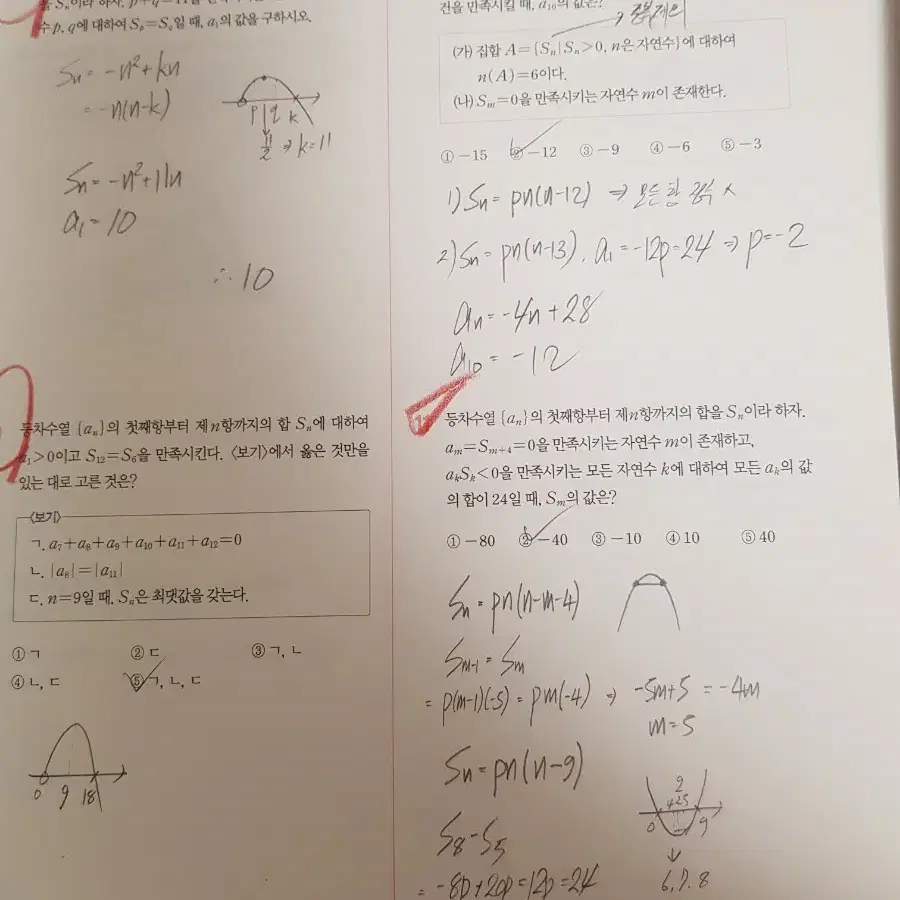 수 p, q에 대하여 Sp=Sq일 때, a₁의 값을 구하시오.
Sn = -n²+kn
= -n(n-k)
p q k
11/2 ⇒ k=11
Sn = -n²+11n
a₁ = 10
∴ 10
등차수열 {aₙ}의 첫째항부터 제n항까지의 합 Sₙ에 대하여
a₁>0이고 S₁₂=S₆을 만족시킨다. <보기>에서 옳은 것만을
있는 대로 고른 것은?
<보기>
ㄱ. a₇+a₈+a₉+a₁₀+a₁₁+a₁₂=0
ㄴ. |a₈|=|a₁₁|
ㄷ. n=9일 때, Sₙ은 최댓값을 갖는다.
① ㄱ ② ㄷ ③ ㄱ, ㄴ
④ ㄴ, ㄷ ⑤ ㄱ, ㄴ, ㄷ
0 9 18
건을 만족시킬 때, a₁₀의 값은?
(가) 집합 A={Sₙ|Sₙ>0, n은 자연수}에 대하여
n(A)=6이다.
(나) Sₘ=0을 만족시키는 자연수 m이 존재한다.
① -15 ② -12 ③ -9 ④ -6 ⑤ -3
1) Sn = pn(n-12) ⇒ 모든 항 중복 x
2) Sn = pn(n-13), a₁ = -12p = 24 ⇒ p = -2
an = -4n+28
a₁₀ = -12
등차수열 {aₙ}의 첫째항부터 제n항까지의 합을 Sₙ이라 하자.
aₘ=Sₘ₊₄=0을 만족시키는 자연수 m이 존재하고,
aₖSₖ<0을 만족시키는 모든 자연수 k에 대하여 모든 aₖ의 값
의 합이 24일 때, Sₘ의 값은?
① -80 ② -40 ③ -10 ④ 10 ⑤ 40
Sn = pn(n-m-4)
Sm-1 = Sm
= p(m-1)(-5) = pm(-4) ⇒ -5m+5 = -4m
m=5
Sn = pn(n-9)
0 9
S8 - S5
6, 7, 8
= -8p+20p = 12p = 24